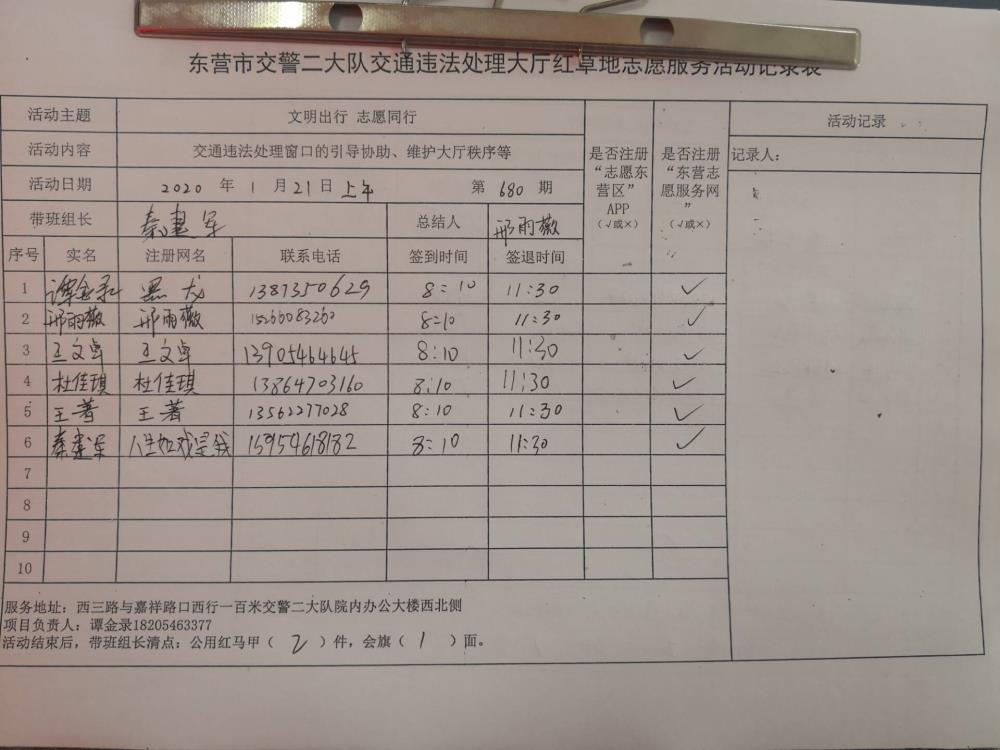 东营市交警二大队交通违法处理大厅红草地志愿服务活动记录表
活动主题 文明出行 志愿同行
活动内容 交通违法处理窗口的引导协助、维护大厅秩序等
活动日期 2020 年 1 月 21 日 上午 第 680 期
带班组长 秦建军 总结人 邢雨薇
是否注册“志愿东营区”APP（√或×）
是否注册“东营志愿服务网”（√或×）
活动记录
记录人：
序号 实名 注册网名 联系电话 签到时间 签退时间
1 谭金录 黑龙 1387350629 8:10 11:30 ✓
2 邢雨薇 邢雨薇 15266083260 8:10 11:30 ✓
3 王文卓 王文卓 13905464645 8:10 11:30 ✓
4 杜佳琪 杜佳琪 13864703160 8:10 11:30 ✓
5 王著 王著 13562277028 8:10 11:30 ✓
6 秦建军 人生如戏是我 15954618182 8:10 11:30 ✓
7
8
9
10
服务地址：西三路与嘉祥路口西行一百米交警二大队院内办公大楼西北侧
项目负责人：谭金录18205463377
活动结束后，带班组长清点：公用红马甲（ 2 ）件，会旗（ 1 ）面。